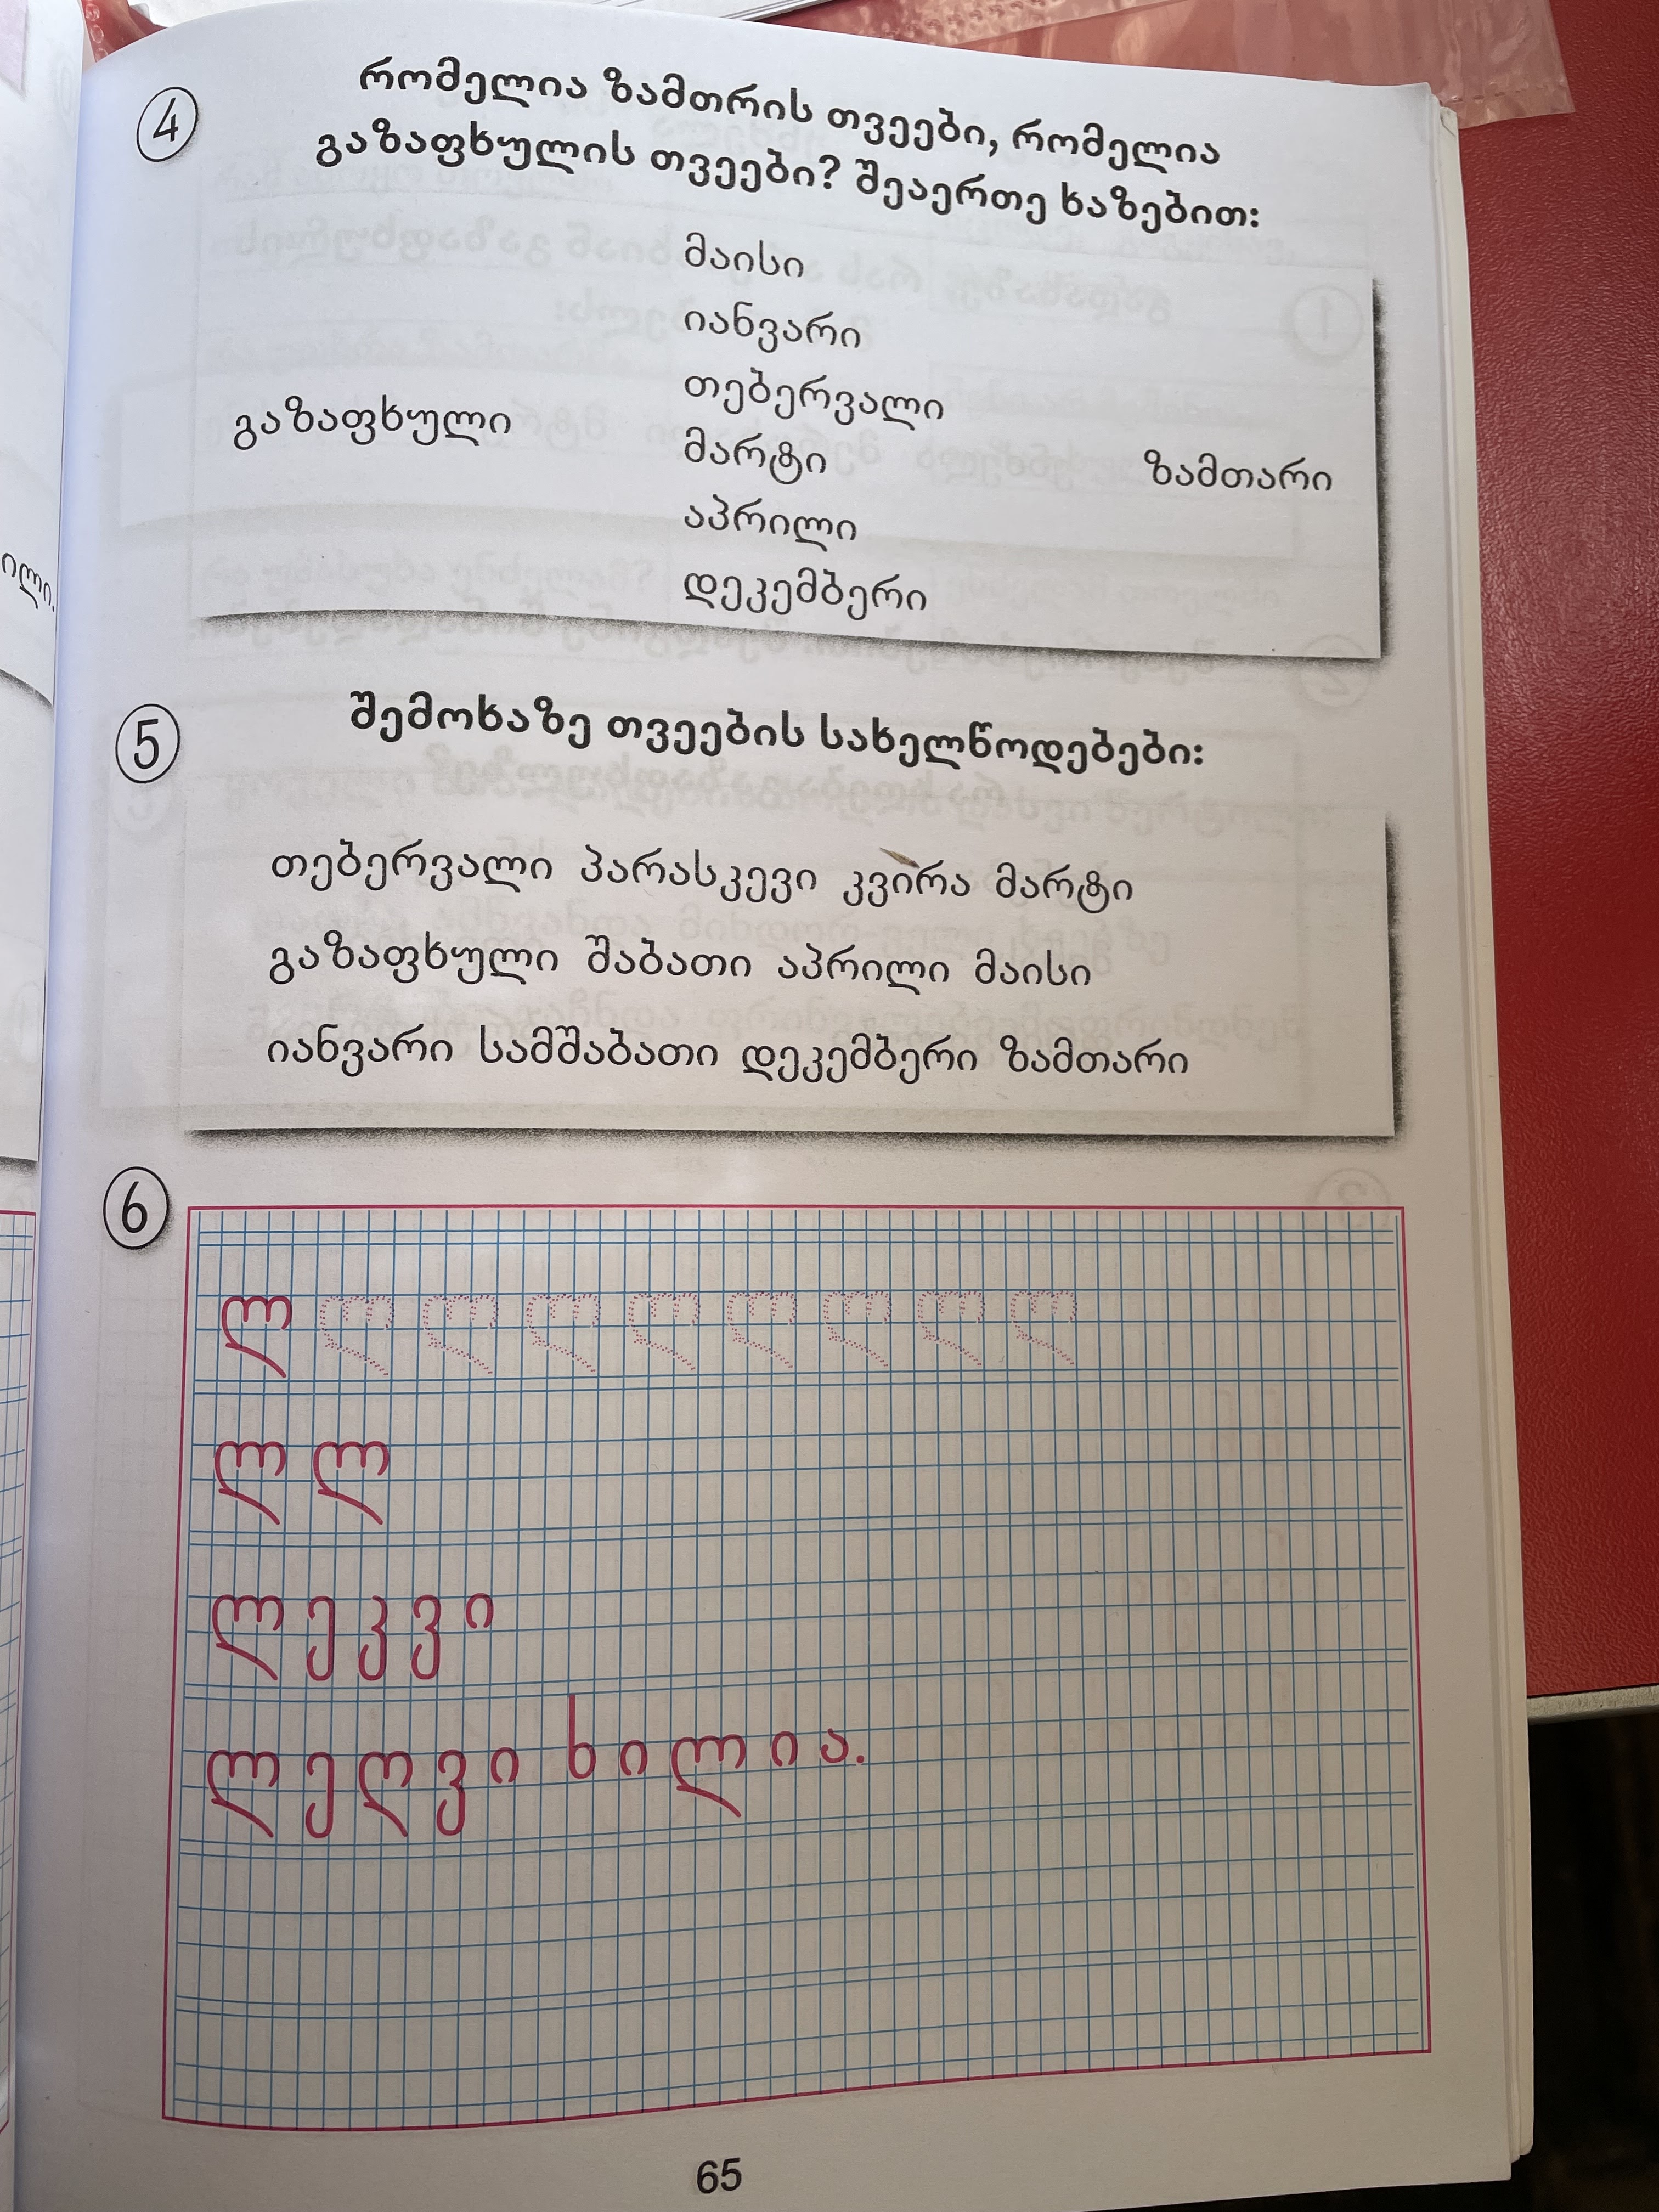 ილი.
4
რომელია ზამთრის თვეები, რომელია
გაზაფხულის თვეები? შეაერთე ხაზებით:
მაისი
იანვარი
თებერვალი
გაზაფხული
მარტი
ზამთარი
აპრილი
დეკემბერი
5
შემოხაზე თვეების სახელწოდებები:
თებერვალი პარასკევი კვირა მარტი
გაზაფხული შაბათი აპრილი მაისი
იანვარი სამშაბათი დეკემბერი ზამთარი
6
ლ ლ ლ ლ ლ ლ ლ ლ ლ
ლ ლ
ლეკვი
ლეღვი ხილია.
65